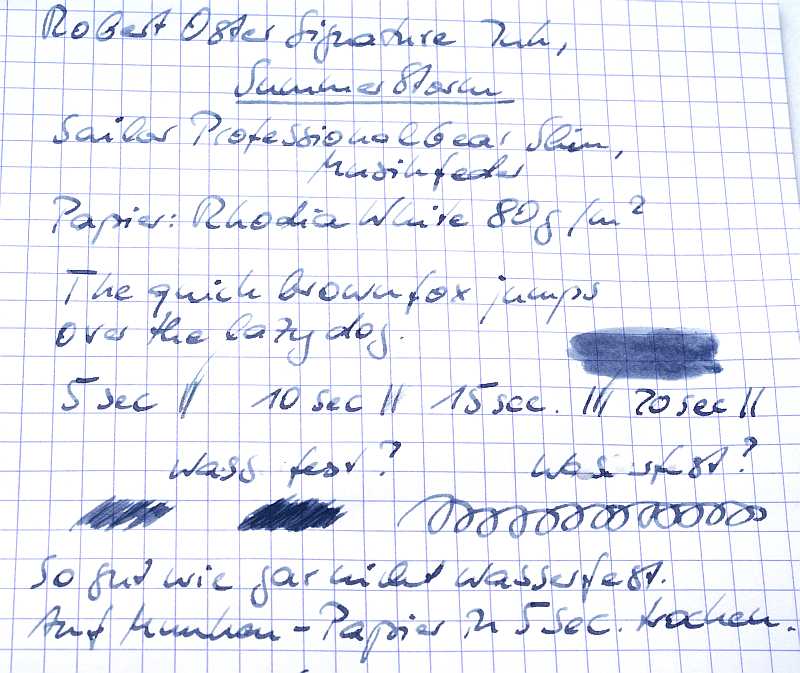 Robert Oster Signature Ink,
Summer Storm
Sailor Professional Gear Slim,
Musikfeder
Papier: Rhodia White 80g/m²
The quick brown fox jumps
over the lazy dog.
5 sec || 10 sec || 15 sec. ||| 20 sec ||
Wass fest? Was rfest?
So gut wie gar nicht wasserfest.
Auf - Papier in 5 sec. trocken.